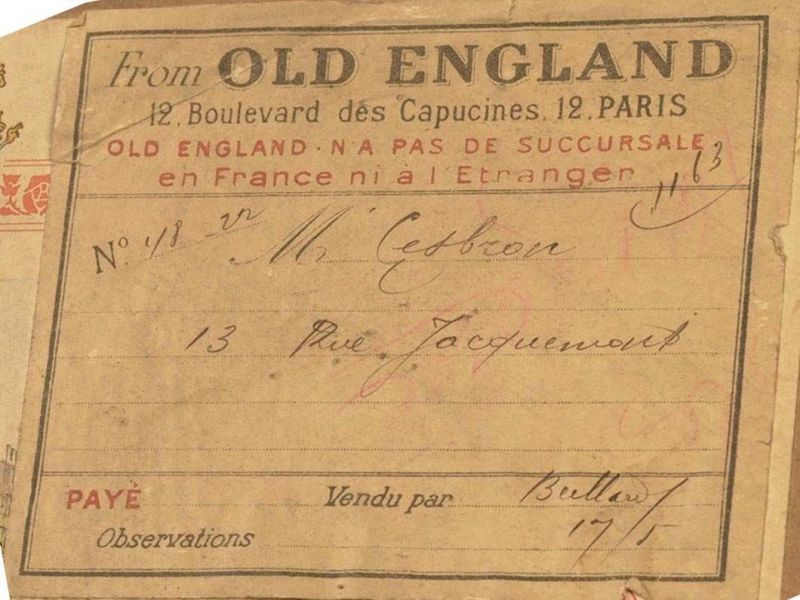 From OLD ENGLAND
12, Boulevard des Capucines, 12, PARIS
OLD ENGLAND · N'A PAS DE SUCCURSALE
en France ni à l'Etranger
1163
Nº 48
Mr Cesbron
13 Rue Jacquemont
PAYÉ Vendu par
Observations 17/5